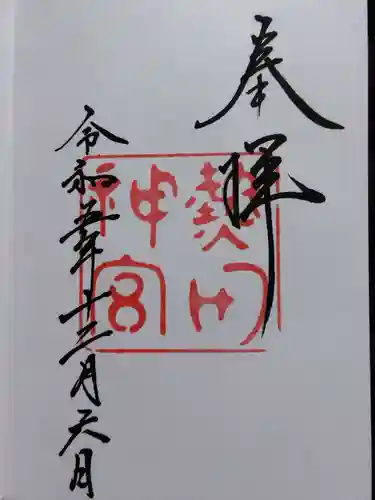 奉拝
熱田神宮
令和五年十二月六日